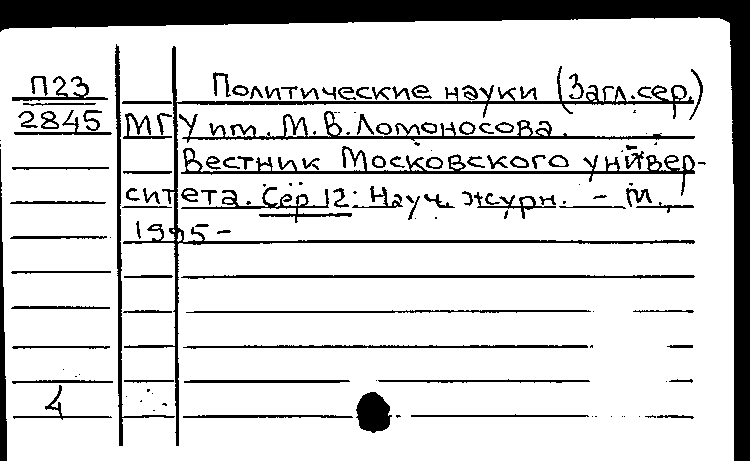 П23 Политические науки (Загл.сер.)
2845 МГУ им. М.В.Ломоносова.
Вестник Московского универ-
ситета. Сер 12: Науч. журн. - М.,
1995-
4